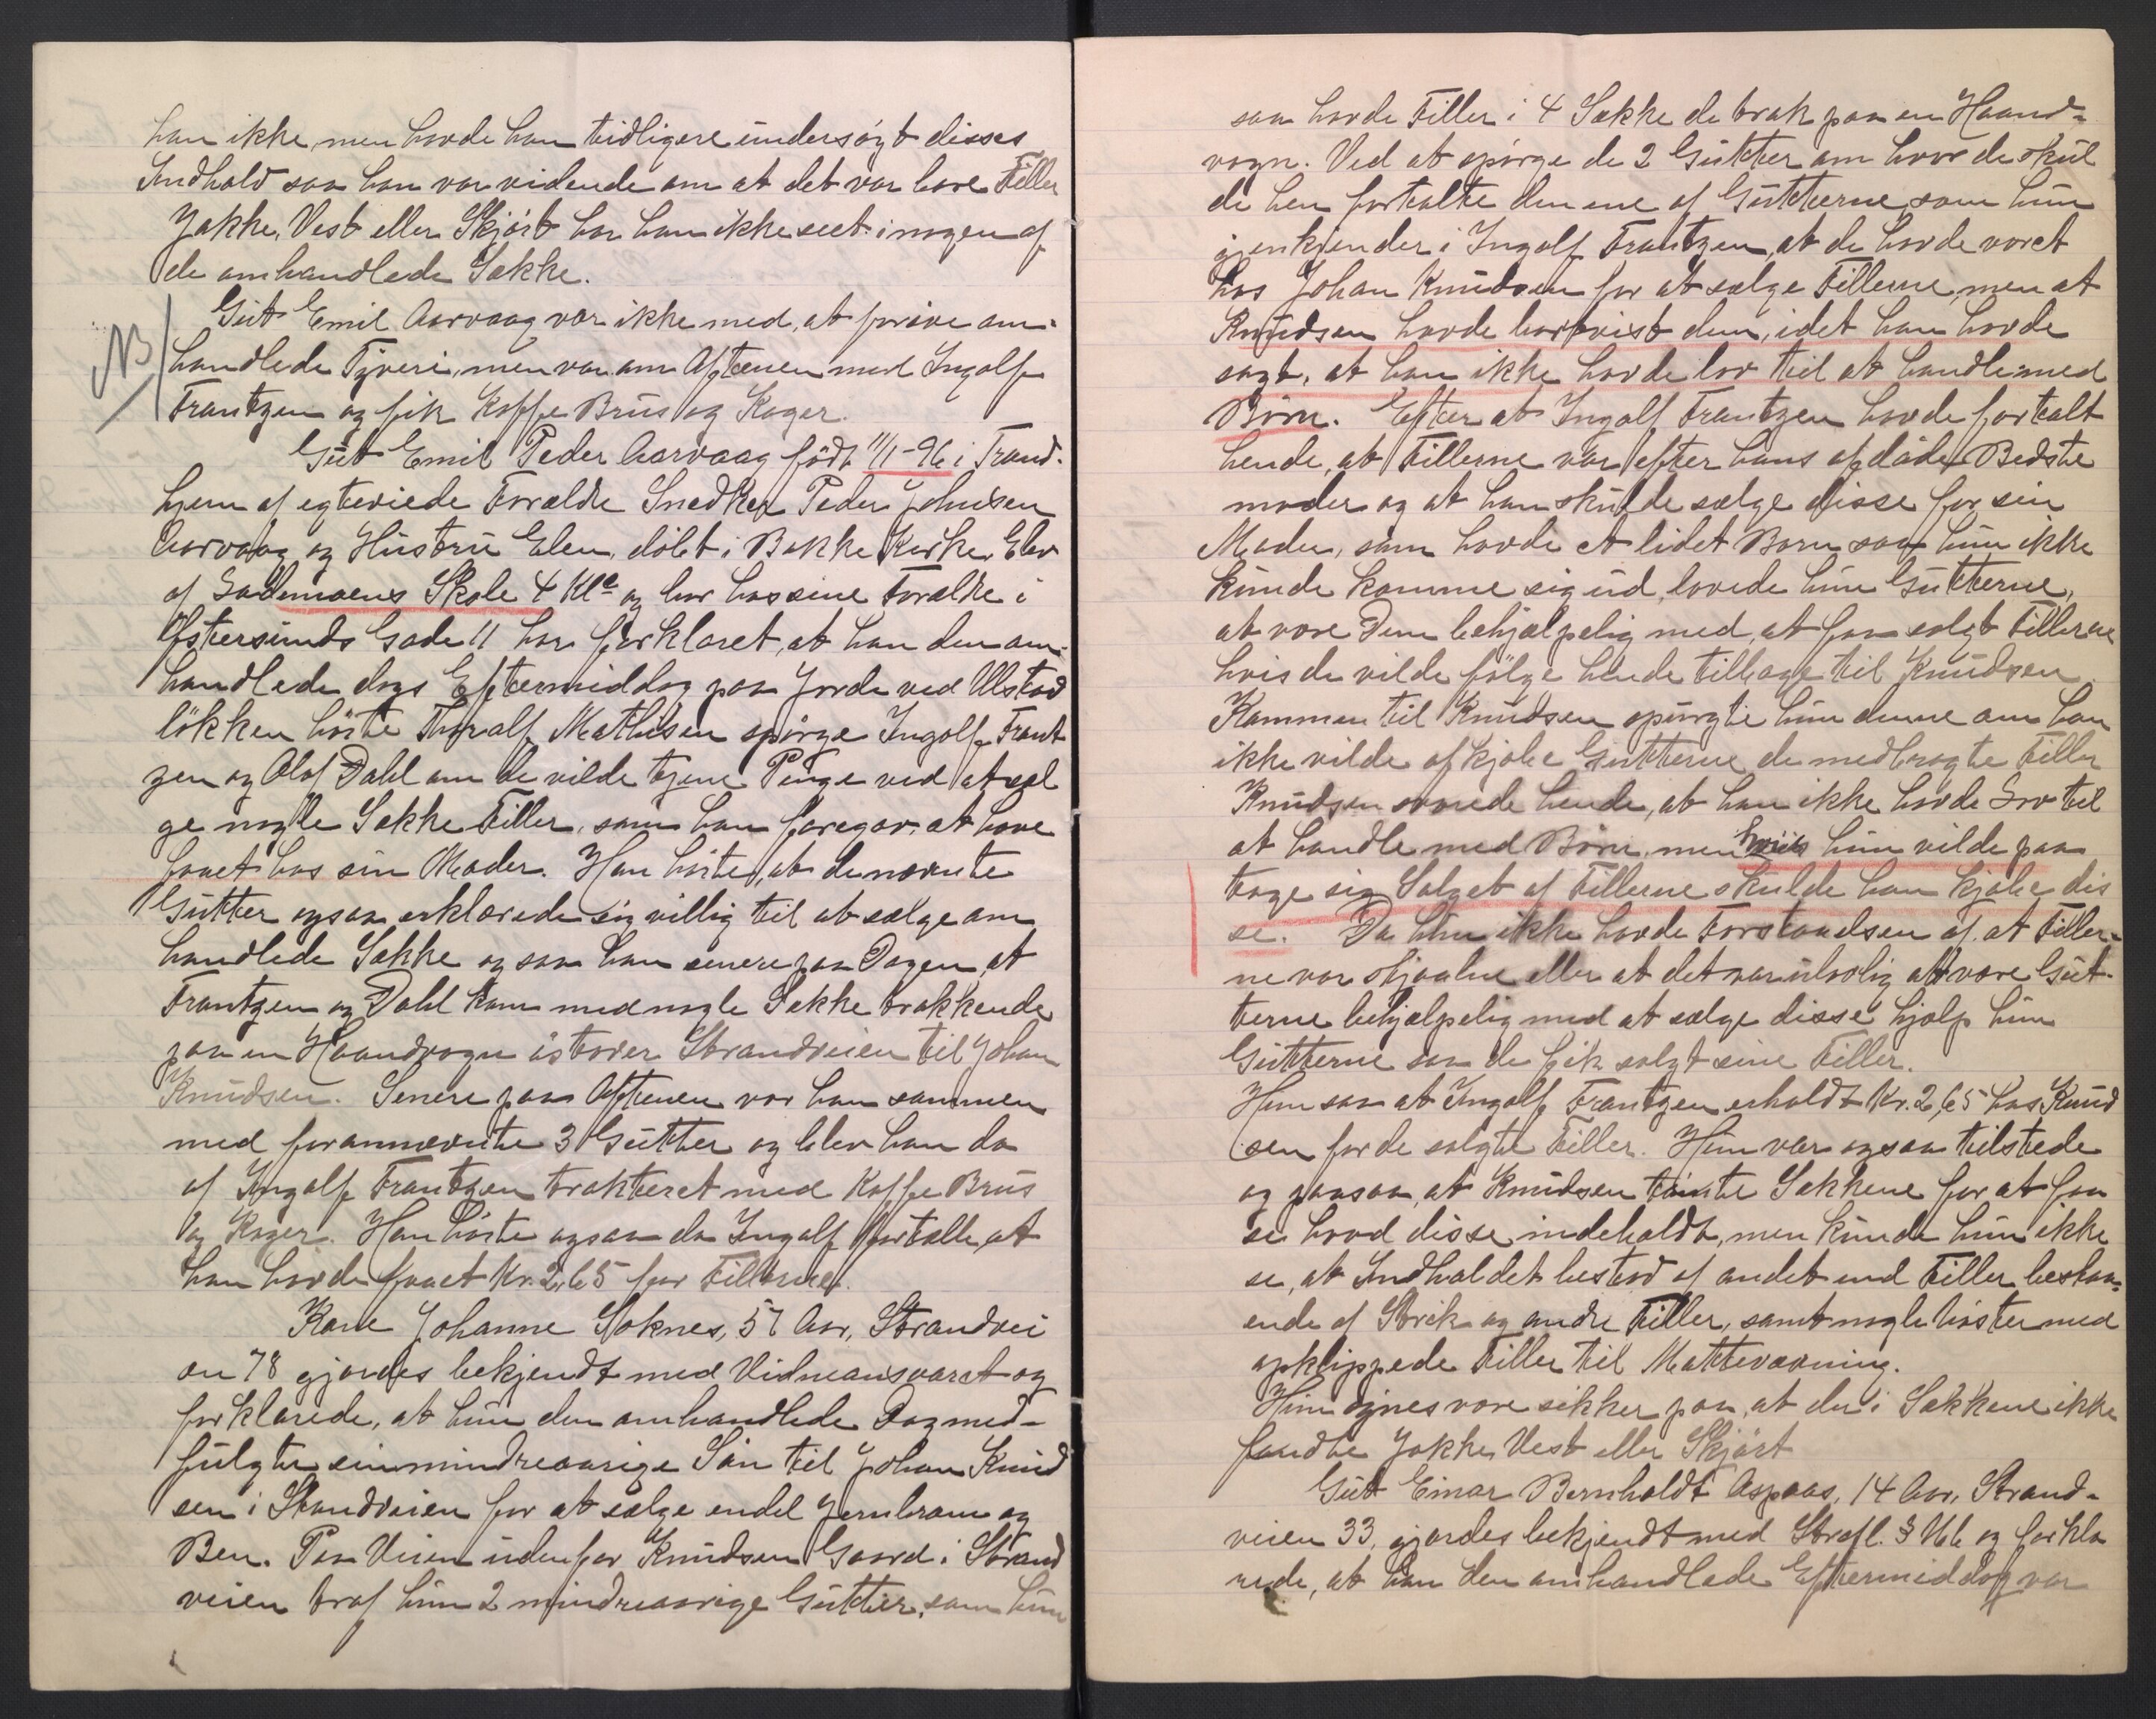 han ikke, men havde han tidligere undersøgt disses
Indhold saa han var vidende om at det var bare Filler
Jakke, Vest eller Skjört har han ikke seet i nogen af
de omhandlede Sække.
NB
Gut Emil Aarvaag var ikke med, at forøve om-
handlede Tyveri, men var om Aftenen med Ingolf
Frantzen og fik Kaffe Brus og Kager.
Gut Emil Peder Aarvaag født 11/1-96 i Trond-
hjem af egteviede Forældre Snedker Peder Johnsen
Aarvaag og Hustru Elen, döbt i Bakke Kirke, Elev
af Lademoens Skole 4 Kl. og bor hos sine Forældre i
Østersunds Gade 11 har forklaret, at han den om-
handlede dags Eftermiddag paa Jorde ved Ulstad
lökken hörte Thoralf Mathisen spörge Ingolf Frant
zen og Olaf Dahl om de vilde tjene Penge ved at sæl
ge nogle Sække Filler, som han foregav at have
faaet hos sin Moder. Han hörte, at de nævnte
Gutter ogsaa erklærede sig villig til at sælge om
handlede Sække og saa han senere paa Dagen, at
Frantzen og Dahl kom med nogle Sække trækkende
paa en Haandvogn östover Strandveien til Johan
Knudsen. Senere paa Aftenen var han sammen
med forannævnte 3 Gutter og blev han da
af Ingolf Frantzen trakteret med Kaffe Brus
og Kager. Han hörte ogsaa da Ingolf fortælle, at
han havde faaet Kr. 2,65 for Fillerne.
Kone Johanne Soknes, 57 Aar, Strandvei
en 78 gjordes bekjendt med Vidneansvaret og
forklarede, at hun den omhandlede Dag med-
fulgte sin mindreaarige Sön til Johan Knud
sen i Strandveien for at sælge endel Jernbram og
Ben. Paa Veien udenfor Knudsen Gaard i Strand
veien traf hun 2 mindreaarige Gutter, som hun
saa havde Filler i 4 Sække de trak paa en Haand-
vogn. Ved at spörge de 2 Gutter om hvor de skul
de hen fortalte den ene af Gutterne, som hun
gjenkjender i Ingolf Frantzen, at de havde været
hos Johan Knudsen for at sælge Fillerne, men at
Knudsen havde bortvist dem, idet han havde
sagt, at han ikke havde lov til at handle med
Börn. Efter at Ingolf Frantzen havde fortalt
hende, at Fillerne var efter hans afdöde Bedste
moder og at han skulde sælge disse for sin
Moder, som havde et lidet Barn saa hun ikke
kunde komme sig ud, lovede hun Gutterne,
at være Dem behjælpelig med, at faa solgt Fillerne
hvis de vilde fölge hende tilbage til Knudsen.
Kommen til Knudsen spurgte hun denne om han
ikke vilde afkjöbe Gutterne de medbragte Filler
Knudsen svarede hende, at han ikke havde Lov til
at handle med Börn, men hvis hun vilde paa
tage sig Salget af Fillerne skulde han kjöbe dis
se. Da hun ikke havde Forstaaelsen af, at Filler-
ne var stjaalne eller at det var ulovlig at være Gut-
terne behjælpelig med at sælge disse hjalp hun
Gutterne saa de fik solgt sine Filler.
Hun saa at Ingolf Frantzen erholdt Kr. 2,65 hos Knud
sen for de solgte Filler. Hun var ogsaa tilstede
og paasaa, at Knudsen tömte Sækkene for at faa
se hvad disse indeholdt, men kunde hun ikke
se, at Indholdet bestod af andet end Filler bestaa-
ende af Strik og andre Filler, samt nogle Nöster med
opklippede Filler til Mattevævning.
Hun synes være sikker paa, at der i Sækkene ikke
fandtes Jakke, Vest eller Skjört
Gut Einar Bernholdt Aspaas, 14 Aar, Strand-
veien 33, gjordes bekjendt med Strafl. § 166 og forkla
rede, at han den omhandlede Eftermiddag var